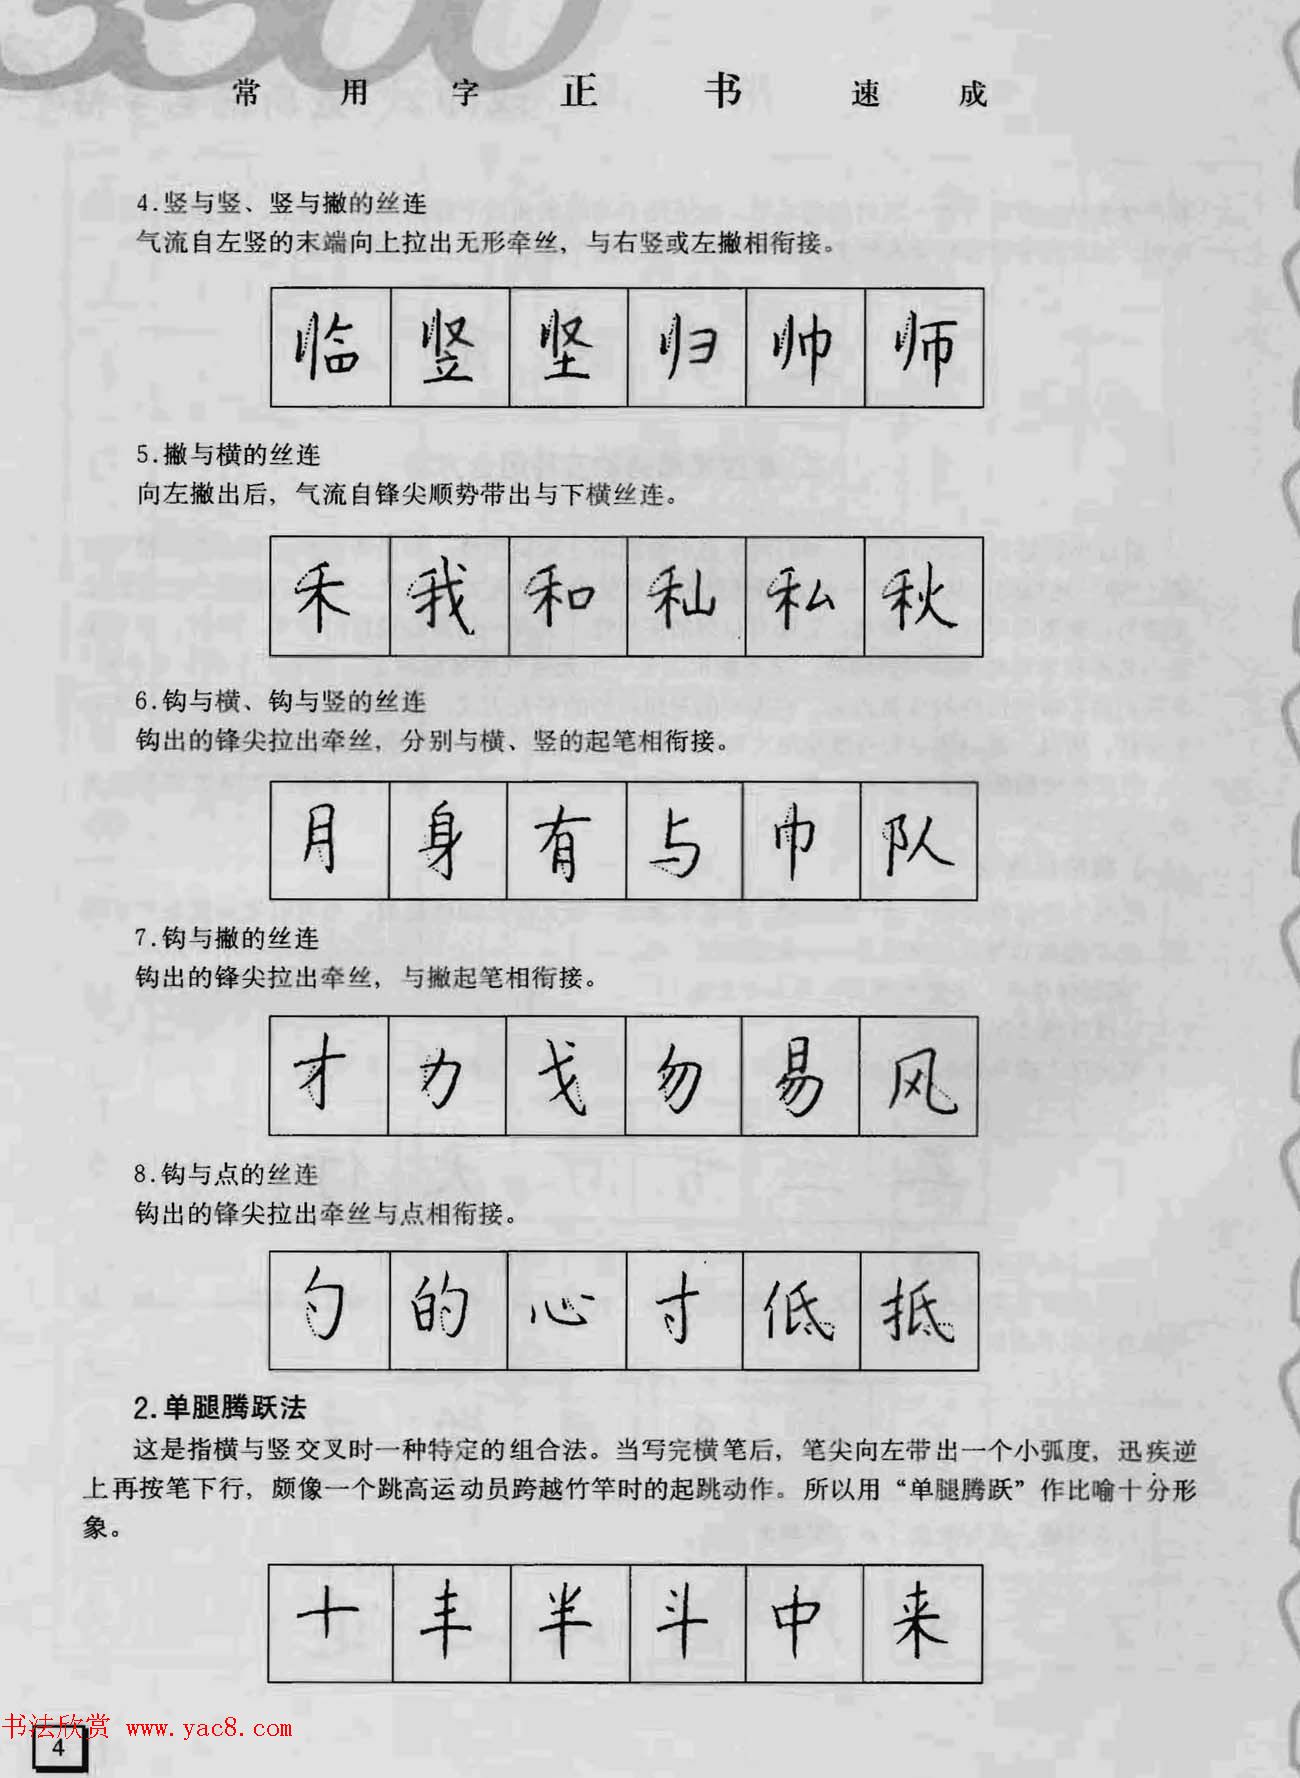 3500
常用字正书速成
4.竖与竖、竖与撇的丝连
气流自左竖的末端向上拉出无形牵丝，与右竖或左撇相衔接。
临 竖 坚 归 帅 师
5.撇与横的丝连
向左撇出后，气流自锋尖顺势带出与下横丝连。
禾 我 和 秈 私 秋
6.钩与横、钩与竖的丝连
钩出的锋尖拉出牵丝，分别与横、竖的起笔相衔接。
月 身 有 与 巾 队
7.钩与撇的丝连
钩出的锋尖拉出牵丝，与撇起笔相衔接。
才 力 戈 勿 易 风
8.钩与点的丝连
钩出的锋尖拉出牵丝与点相衔接。
勺 的 心 寸 低 抵
2.单腿腾跃法
这是指横与竖交叉时一种特定的组合法。当写完横笔后，笔尖向左带出一个小弧度，迅疾逆
上再按笔下行，颇像一个跳高运动员跨越竹竿时的起跳动作。所以用“单腿腾跃”作比喻十分形
象。
十 丰 半 斗 中 来
书法欣赏 www.yac8.com
4